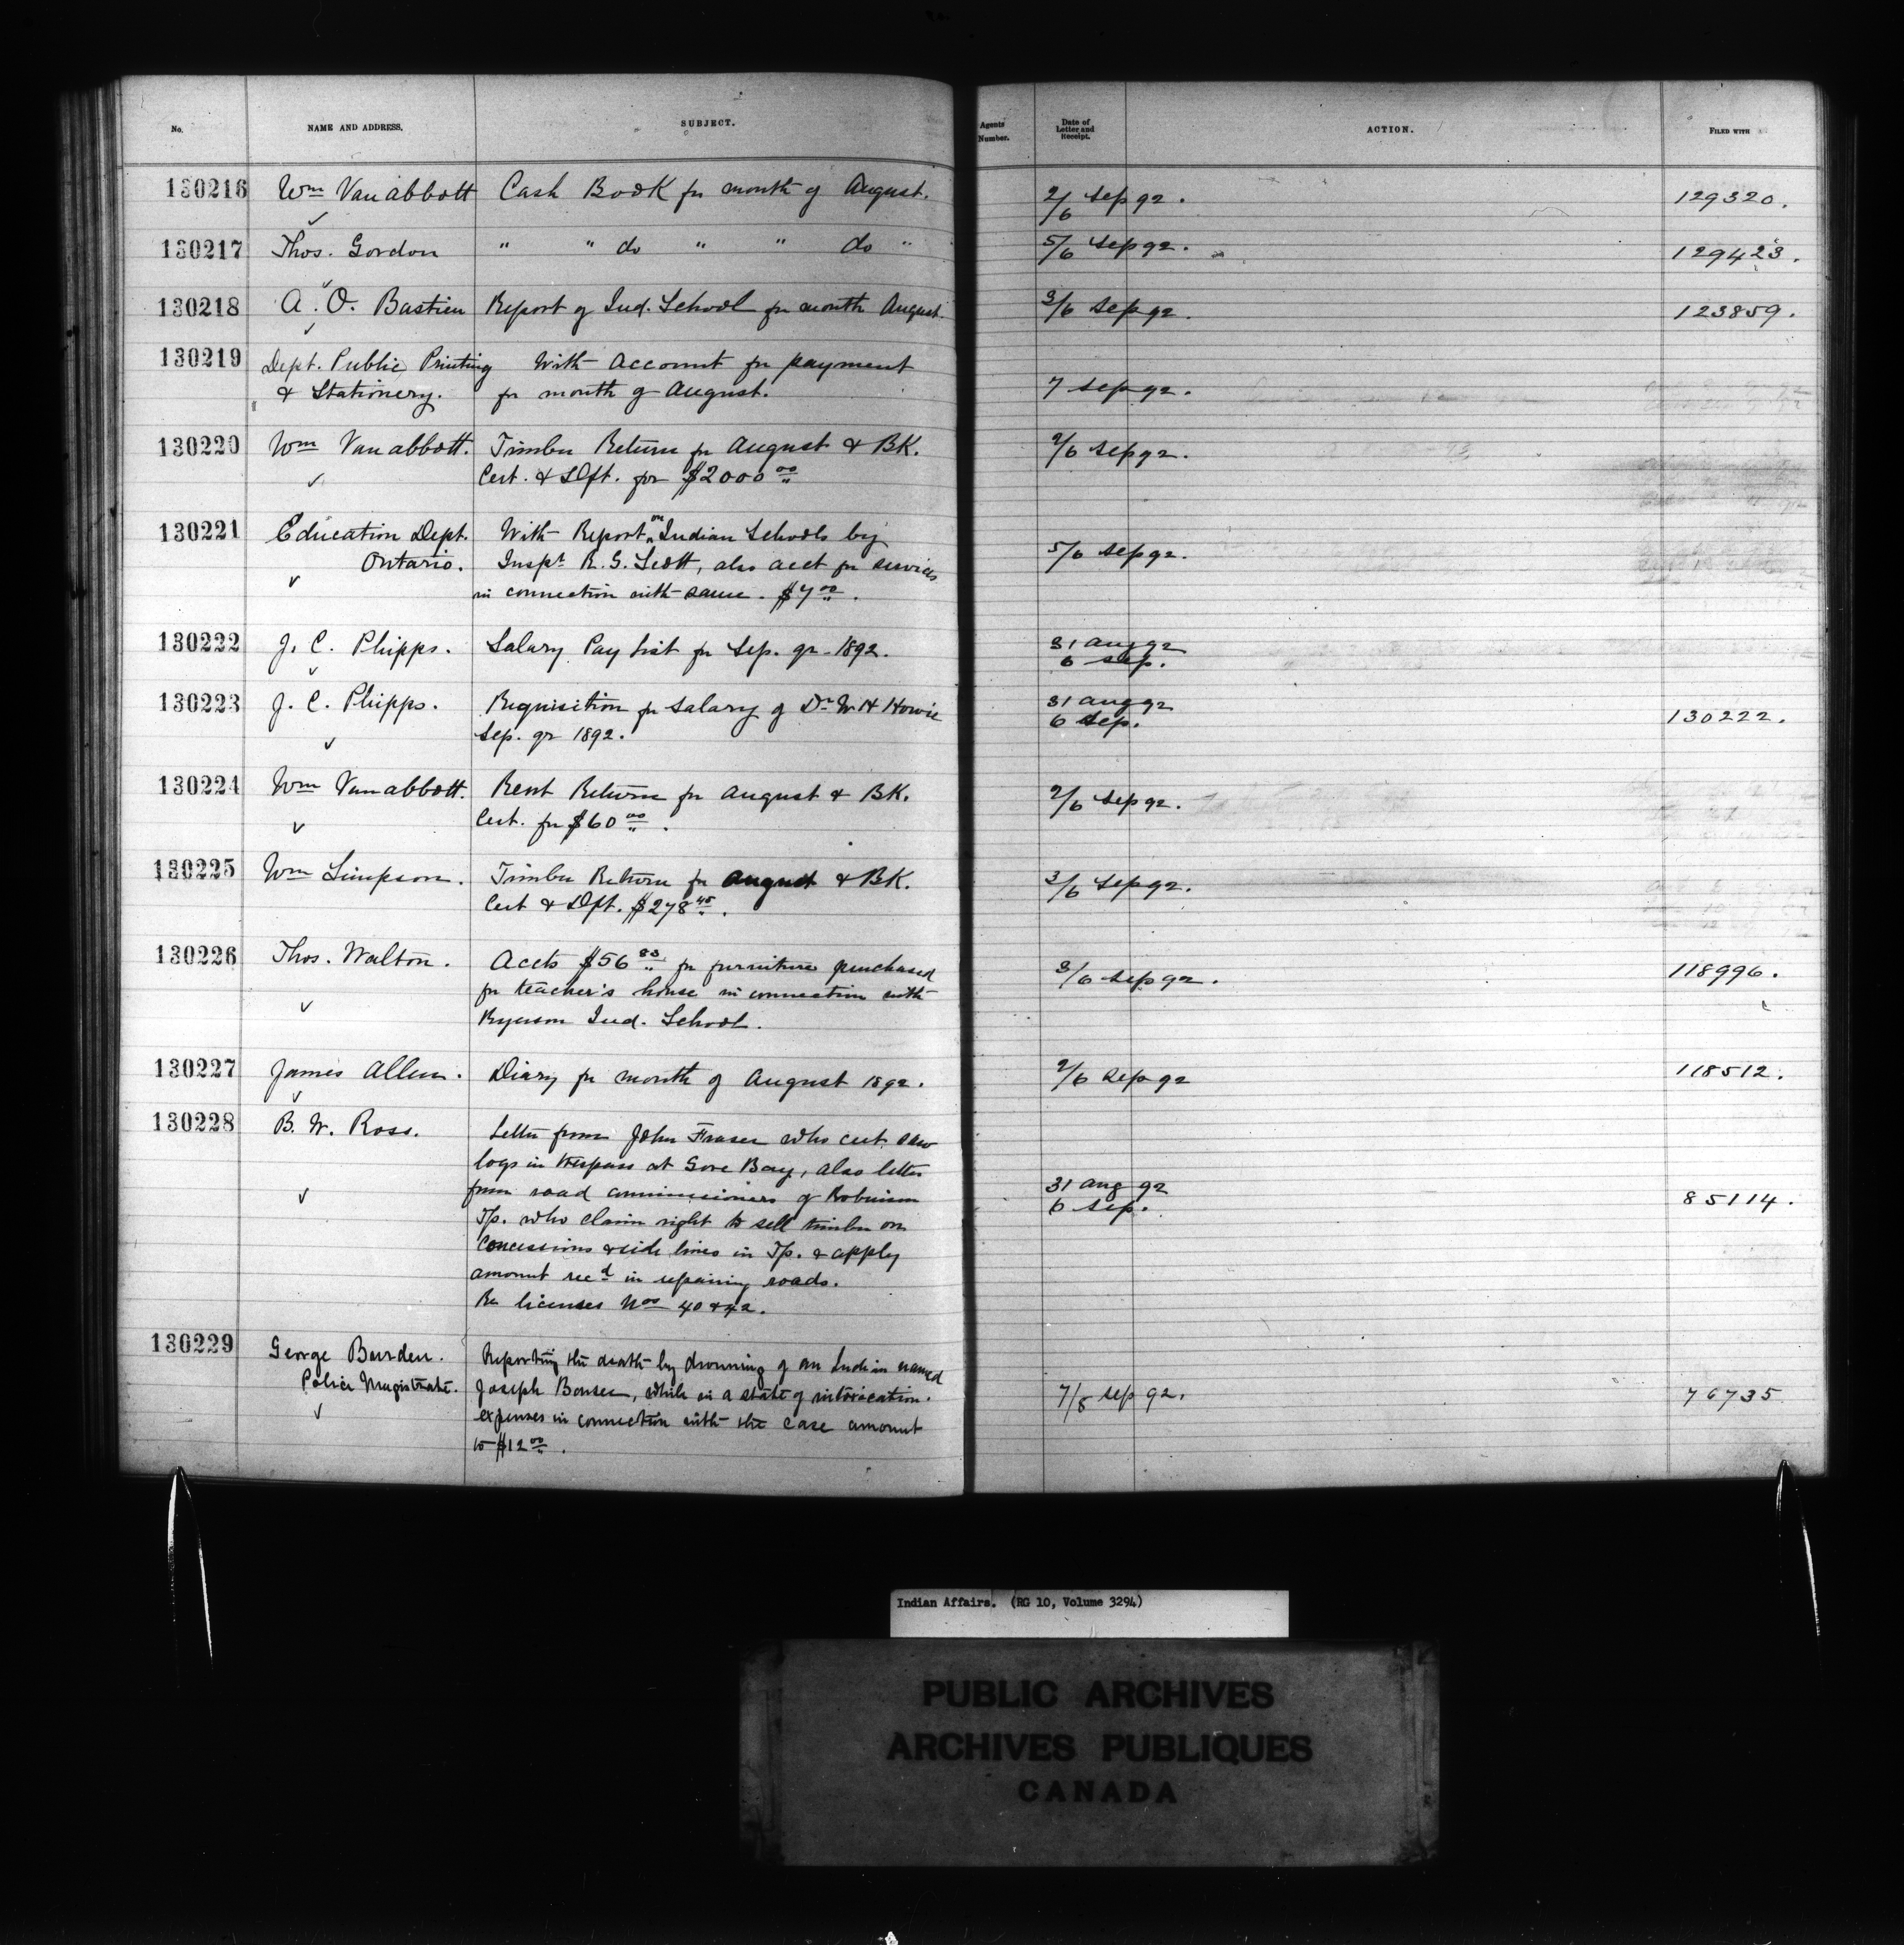 No. NAME AND ADDRESS. SUBJECT. Agents Number. Date of Letter and Receipt. ACTION. FILED WITH
130216 Wm Van abbott Cash Book for month of August. 2/6 Sep 92. 129320.
130217 Thos. Gordon " " do " " do " 5/6 Sep 92. 129423.
130218 A. O. Bastien Report of Ind. School for month August. 3/6 Sep 92. 123859.
130219 Dept. Public Printing With Account for payment
& Stationery. for month of August. 7 Sep 92.
130220 Wm Van abbott. Timber Return for August & BK. 2/6 Sep 92.
Cert. & Dft. for $2000 00
130221 Education Dept. With Report on Indian Schools by
Ontario. Inspr R. G. Scott, also acct for services 5/6 Sep 92.
in connection with same. $7 00.
130222 J. C. Phipps. Salary Pay List for Sep. qr 1892. 31 Aug 92
6 Sep.
130223 J. C. Phipps. Requisition for Salary of Dr W. H Howie 31 Aug 92
Sep. qr 1892. 6 Sep. 130222.
130224 Wm Van abbott. Rent Return for August & BK. 2/6 Sep 92.
Cert. for $60 00.
130225 Wm Simpson. Timber Return for August & BK. 3/6 Sep 92.
Cert & Dft. $278 45.
130226 Thos. Walton. Accts $56 83 for furniture purchased 3/6 Sep 92. 118996.
for teacher's house in connection with
Ryerson Ind. School.
130227 James Allen. Diary for month of August 1892. 2/6 Sep 92 118512.
130228 B. W. Ross. Letter from John Fraser who cut saw
logs in trespass at Gore Bay, also letter
from road commissioners of Robinson 31 Aug 92
Tp. who claim right to sell timber on 6 Sep. 85114.
Concessions & side lines in Tp. & apply
amount recd in repairing roads.
Re licenses Nos 40 & 42.
130229 George Burden. Reporting the death by drowning of an Indian named
Police Magistrate. Joseph Bonser, while in a state of intoxication. 7/8 Sep 92. 76735
expenses in connection with the case amount
to $12 00.
Indian Affairs. (RG 10, Volume 3294)
PUBLIC ARCHIVES
ARCHIVES PUBLIQUES
CANADA